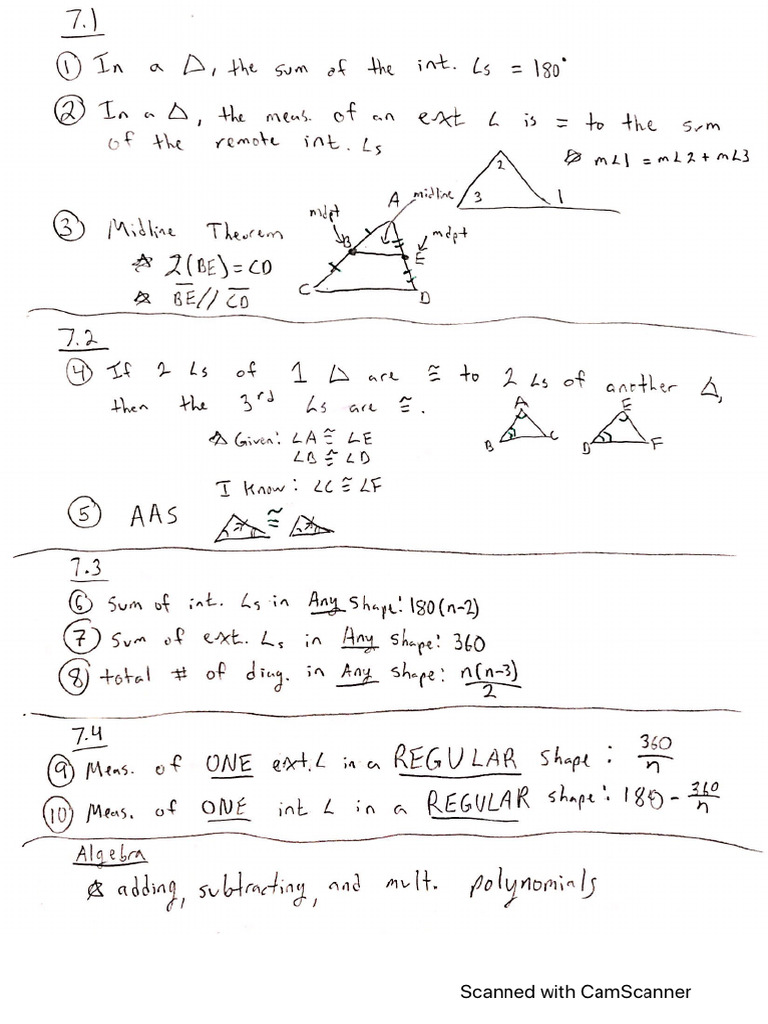 7.1
① In a △, the sum of the int. ∠s = 180°
② In a △, the meas. of an ext ∠ is = to the sum
of the remote int. ∠s
☆ m∠1 = m∠2 + m∠3
2
3 1
③ Midline Theorem
☆ 2(BE)=CD
☆ BE // CD
A midline
mdpt
mdpt
B
E
C
D
7.2
④ If 2 ∠s of 1 △ are ≅ to 2 ∠s of another △,
then the 3rd ∠s are ≅.
☆ Given: ∠A ≅ ∠E
∠B ≅ ∠D
I Know: ∠C ≅ ∠F
A
B C
E
D F
⑤ AAS ≅
7.3
⑥ Sum of int. ∠s in Any shape: 180(n-2)
⑦ Sum of ext. ∠s in Any shape: 360
⑧ total # of diag. in Any shape: n(n-3)/2
7.4
⑨ Meas. of ONE ext. ∠ in a REGULAR shape: 360/n
⑩ Meas. of ONE int ∠ in a REGULAR shape: 180 - 360/n
Algebra
☆ adding, subtracting, and mult. polynomials
Scanned with CamScanner